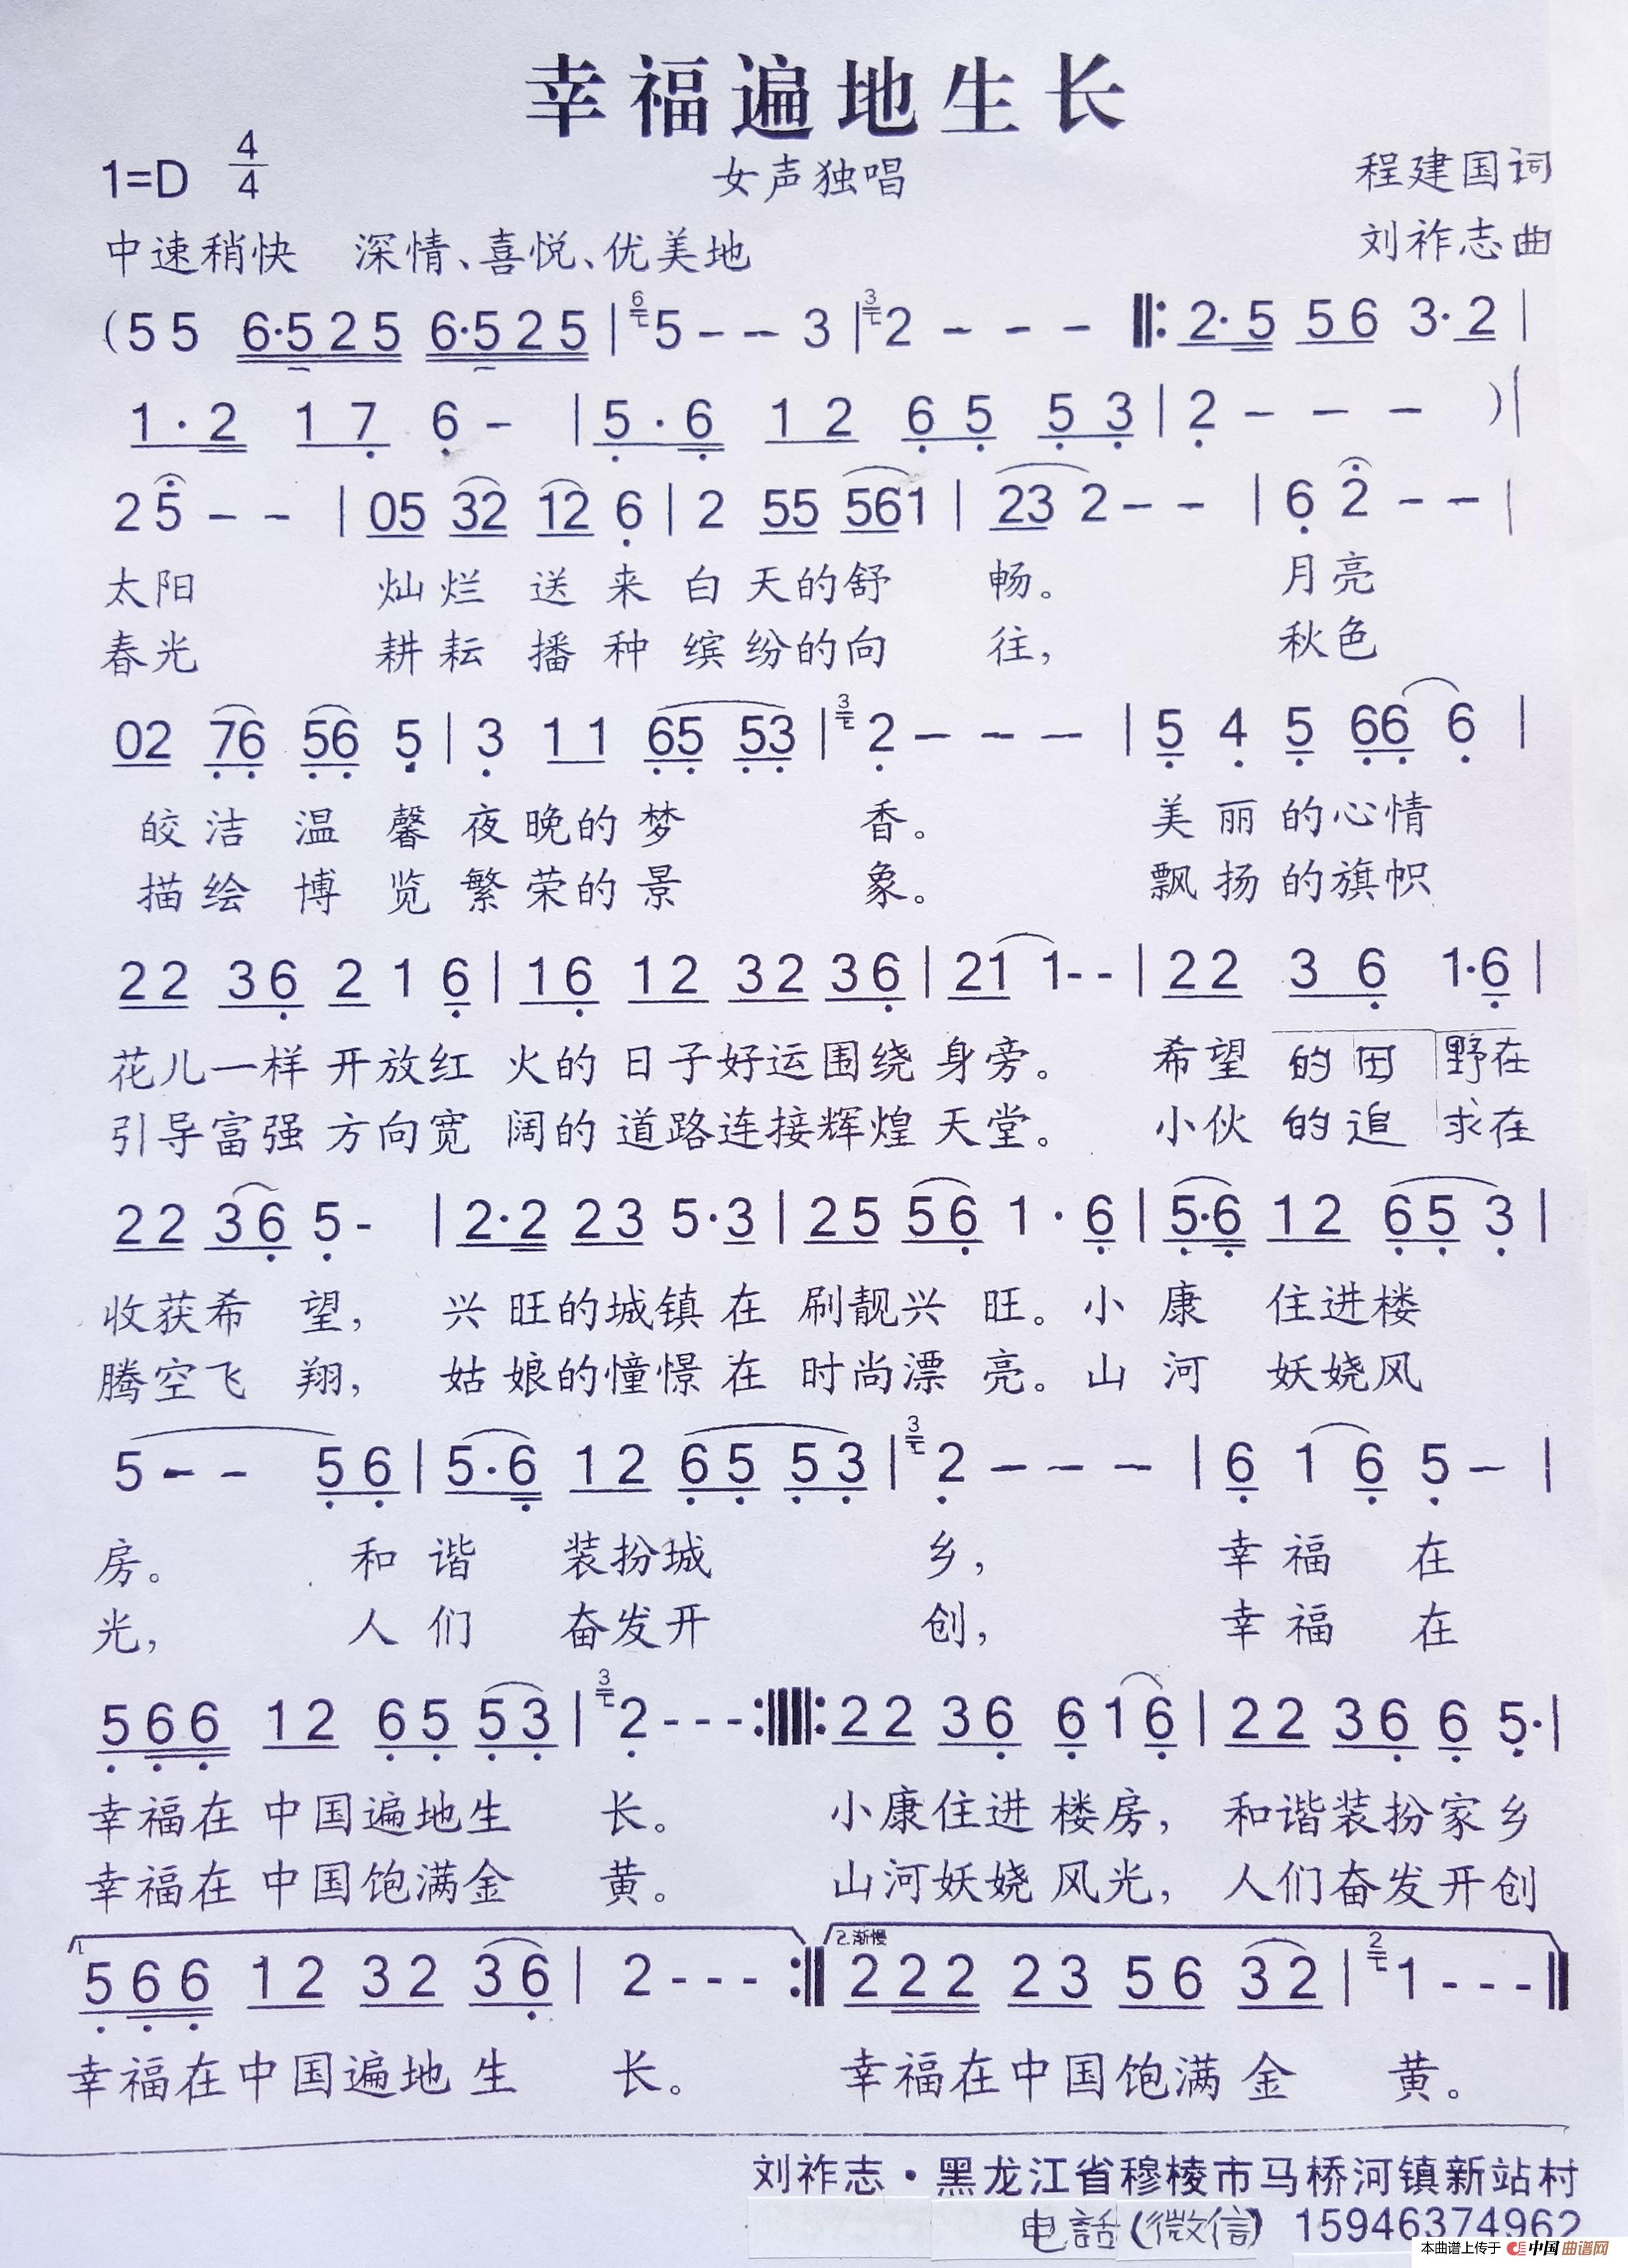 幸福遍地生长
1=D 4/4
女声独唱
程建国词
中速稍快 深情、喜悦、优美地
刘祚志曲
(5 5 6·5 2 5 6·5 2 5 | 6 5 - - 3 | 3 2 - - - ‖: 2· 5 5 6 3· 2 |
1 · 2 1 7 6 - | 5 · 6 1 2 6 5 5 3 | 2 - - - )|
2 5 - - | 05 32 12 6 | 2 55 561 | 23 2 - - | 6 2 - - |
太阳 灿烂 送来 白天的舒 畅。 月亮
春光 耕耘 播种 缤纷的向 往, 秋色
02 76 56 5 | 3 1 1 65 53 | 3 2 - - - | 5 4 5 66 6 |
皎洁 温馨 夜晚的梦 香。 美丽的心情
描绘 博览 繁荣的景 象。 飘扬的旗帜
22 36 2 1 6 | 16 12 32 36 | 21 1- - | 22 3 6 1·6 |
花儿一样 开放红 火的 日子好运围绕 身旁。 希望 的田 野在
引导富强 方向宽 阔的 道路连接辉煌 天堂。 小伙 的追 求在
22 36 5 - | 2·2 23 5·3 | 25 56 1 · 6 | 5·6 12 65 3 |
收获希 望, 兴旺的城镇在 刷靓兴 旺。小康 住进楼
腾空飞 翔, 姑娘的憧憬在 时尚漂 亮。山河 妖娆风
5 - - 56 | 5·6 12 65 53 | 3 2 - - - | 6 1 6 5 - |
房。 和谐 装扮城 乡, 幸福 在
光, 人们 奋发开 创, 幸福 在
566 12 65 53 | 3 2 - - - :‖: 22 36 6 1 6 | 22 36 6 5· |
幸福在 中国遍地生 长。 小康住进 楼房, 和谐装扮家乡
幸福在 中国饱满金 黄。 山河妖娆 风光, 人们奋发开创
1. 2.渐慢
566 12 32 36 | 2 - - - :‖ 222 23 56 32 | 2 1 - - - ‖
幸福在中国遍地 生 长。 幸福在中国饱满 金 黄。
刘祚志·黑龙江省穆棱市马桥河镇新站村
电話(微信) 15946374962
本曲谱上传于 中国曲谱网